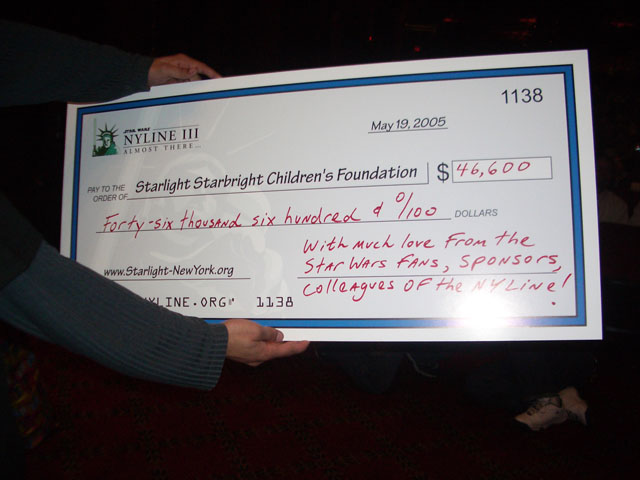 1138
STAR WARS
NYLINE III
ALMOST THERE...
May 19, 2005
PAY TO THE
ORDER OF Starlight Starbright Children's Foundation $ 46,600
Forty-six thousand six hundred & 0/100 DOLLARS
With much love from the
STAR WARS FANS, SPONSORS,
Colleagues OF the NYLine!
www.Starlight-NewYork.org
NYLINE.ORG 1138